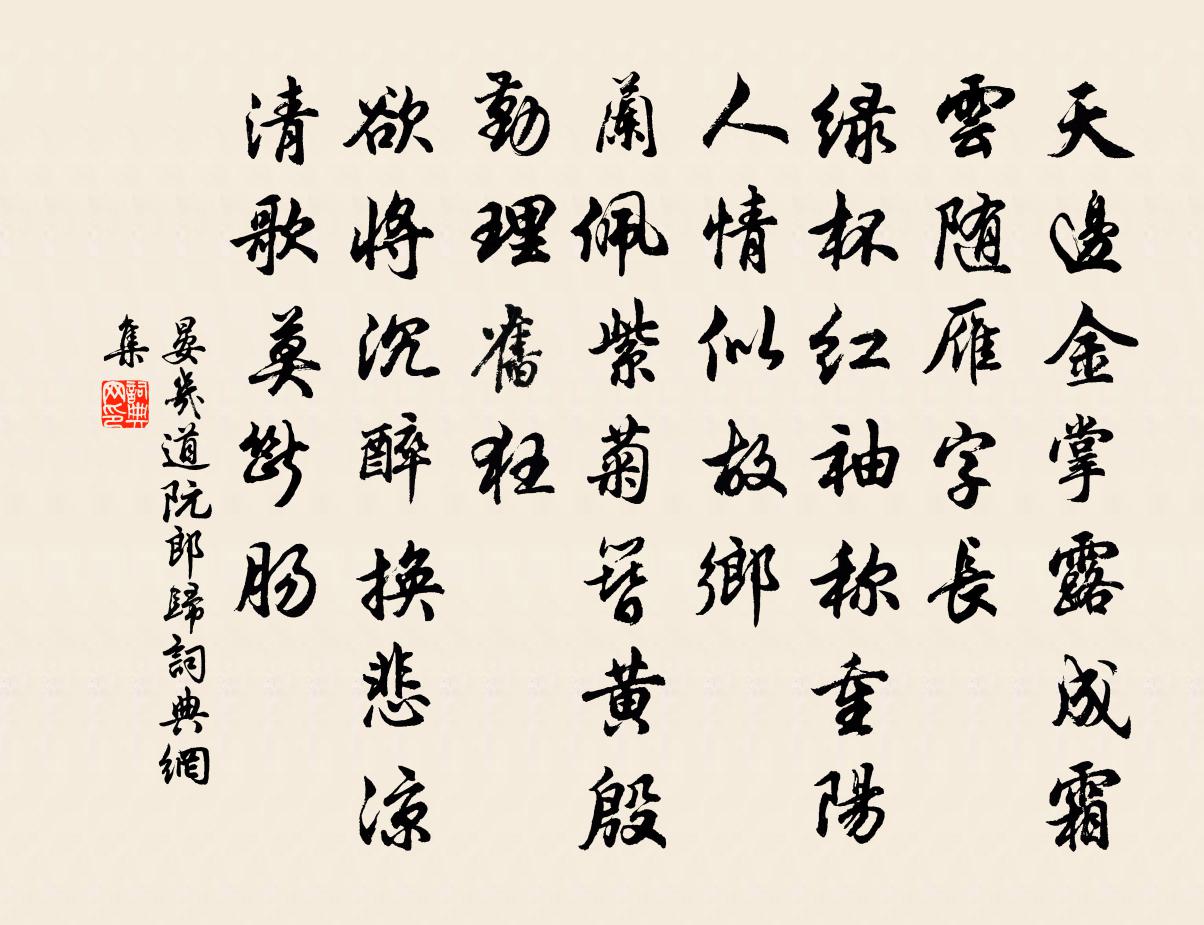 天邊金掌露成霜
雲随雁字長
緑杯紅袖称重陽
人情似故鄉
蘭佩紫菊簪黄殷
勤理舊狂
欲将沉醉換悲涼
清歌莫断腸
晏幾道阮郎歸詞典網
集
詞典网印